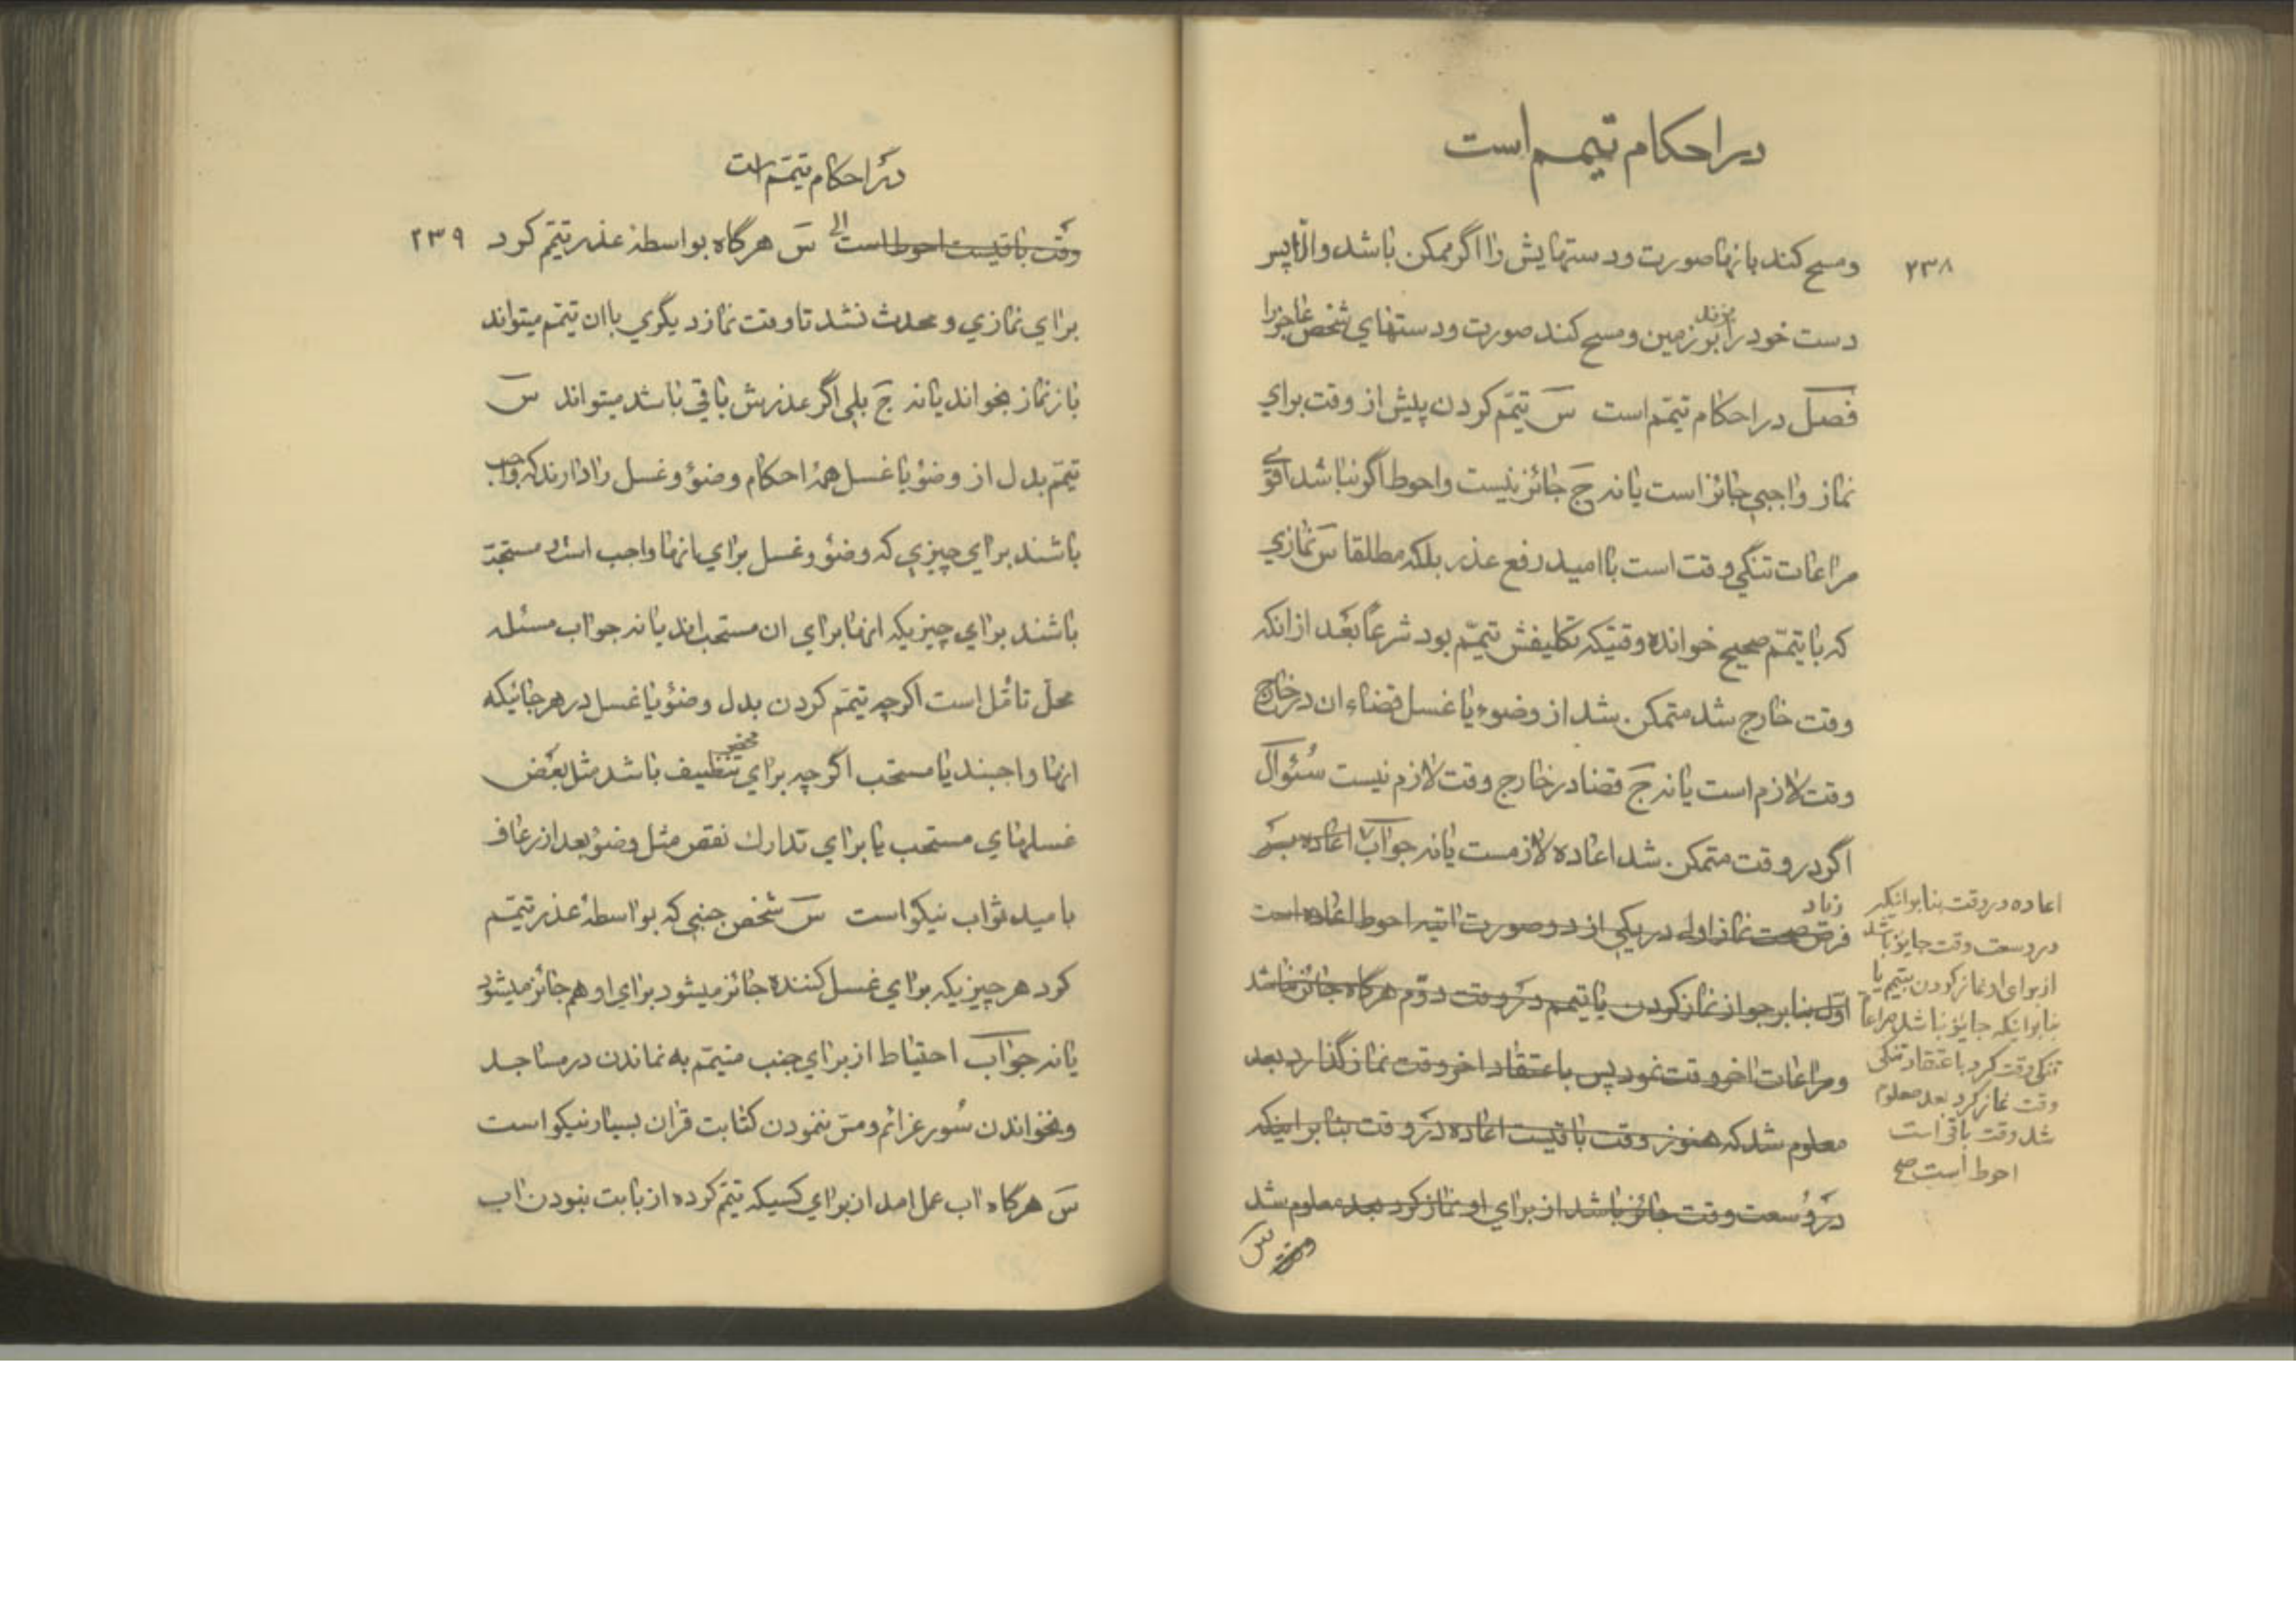 در احکام تیمم است
۲۳۸
ومسح کند بانها صورت ودستهایش را اگر ممکن باشد والّا پس
دست خود را بزند بر زمین ومسح کند صورت ودستهای شخص عاجز را
فصل در احکام تیمّم است سَ تیمّم کردن پیش از وقت برای
نماز واجبی جائز است یا نه جَ جائز نیست واحوط اگر نباشد اقوی
مراعات تنگی وقت است با امید رفع عذر بلکه مطلقا سَ نمازی
که با تیمّم صحیح خوانده وقتیکه تکلیفش تیمّم بود شرعًا بعْد از انکه
وقت خارج شد متمکن شد از وضوء یا غسل قضاء ان در خارج
وقت لازم است یا نه جَ قضا در خارج وقت لازم نیست سُئوال
اگر در وقت متمکن شد اعاده لازمست یا نه جواب اعاده بر
زیاد
فرض صحت نماز اوله در یکی از دو صورت اتیه احوط اعاده است
اوّل بنابر جواز نماز کردن با تیمم در وقت دوّم هرگاه جائز نباشد
ومراعات اخر وقت نمود پس باعتقاد اخر وقت نماز گذارد بعد
معلوم شد که هنوز وقت باقیست اعاده در وقت بنابر اینکه
در وُسعت وقت جائز باشد از برای او نماز کرد بعد معلوم شد
وقت
س
اعاده در وقت بنابر انیکه
در وسعت وقت جایز باشد
از برای او نماز کردن بتیمم یا
بنابر انیکه جایز نباشد مراعات
تنکی وقت کرد باعتقاد تنکی
وقت نماز کرد بعد معلوم
شد وقت باقی است
احوط است صح
در احکام تیمّم است
۲۳۹
وقت باقیست احوط است الی سَ هرگاه بواسطهٔ عذر تیمّم کرد
برای نمازی و محدث نشد تا وقت نماز دیگری با ان تیمّم میتواند
باز نماز بخواند یا نه جَ بلی اگر عذرش باقی باشد میتواند سَ
تیمّم بدل از وضوْ یا غسل همهٔ احکام وضوْ وغسل را دارند که واجب
باشند برای چیزی که وضوْ وغسل برای انها واجب است ومستحبّ
باشند برای چیزیکه انها برای ان مستحب اند یا نه جواب مسئله
محلّ تامّل است اگرچه تیمّم کردن بدل وضوْ یا غسل در هر جائیکه
انها واجبند یا مستحب اگرچه برای محض تنظیف باشد مثل بعْض
غسلهای مستحب یا برای تدارك نقص مثل وضوْ بعد از رعاف
بامید ثواب نیکو است سَ شخص جنبی که بواسطهٔ عذر تیمّم
کرد هر چیزیکه برای غسل کننده جائز میشود برای او هم جائز میشود
یا نه جواب احتیاط از برای جنب متیمّم به نماندن در مساجد
ونخواندن سُور عزائم ومسّ ننمودن کتابت قران بسیار نیکو است
سَ هرگاه اب عمل امد از برای کسیکه تیمّم کرده از بابت نبودن اب